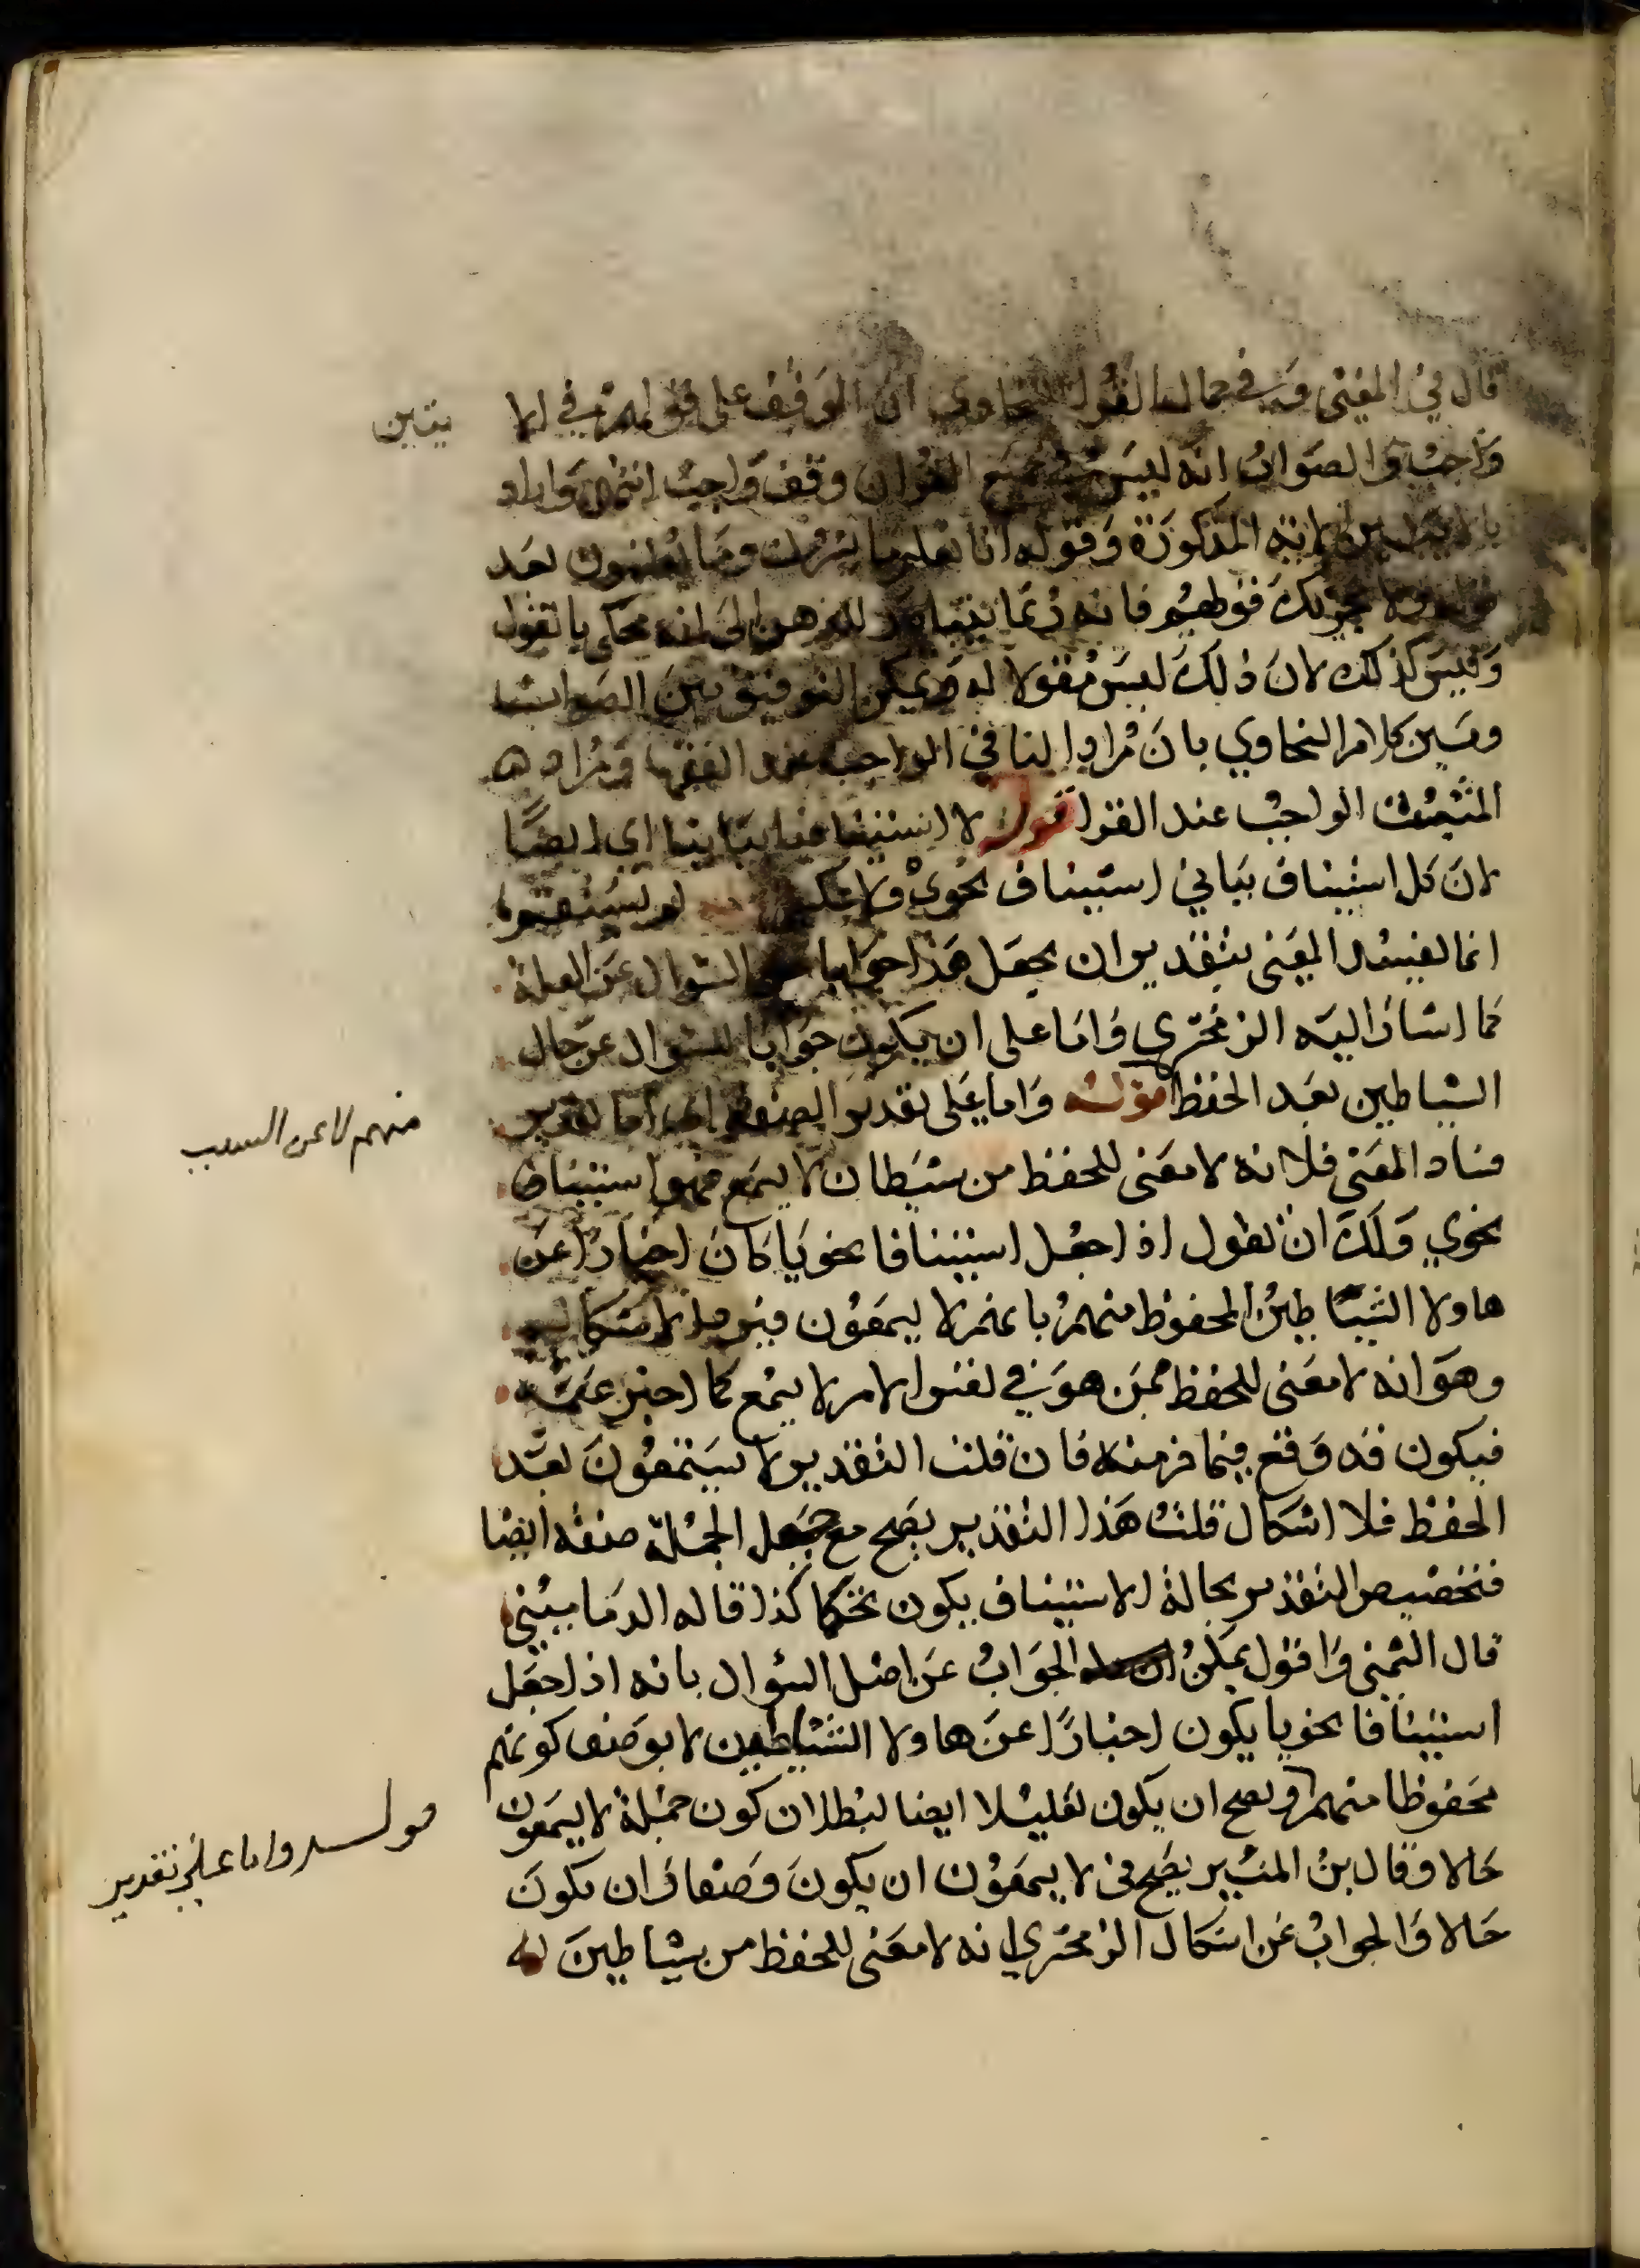 قال في المغنى وفي جمال القرا للسخاوي ان الوقف على قولهم في الا يتين
واجب والصواب انه ليس في جميع القران وقف واجب انتهى واراد
المذكورة وقوله انا نعلم ما يسرون وما يعلنون بعد
يحزنك قولهم فانه ربما يتبادر للذهن الى انه محكى بالقول
وليس كذلك لان ذلك ليس مقولا لهم ويمكن التوفيق بين الصواب
وبين كلام السخاوي بان مراد النافي الواجب عند الفقها ومراد
المثبت الواجب عند القرا قوله لا استينافا بيانيا اي ايضا
لان كل استيناف بياني استيناف نحوي ولا عكس
انما يفسد المعنى بتقدير ان يجعل هذا جوابا عن السوال عن العلة
كما اشار اليه الزمخشري واما على ان يكون جوابا للسوال عن حال
الشياطين بعد الحفظ قوله واما على تقدير الصفة اي اما تقدير
منهم لا عن السبب
فساد المعنى فلانه لا معنى للحفظ من شيطان لا يسمع فهو استيناف
نحوي ولك ان تقول اذا جعل استينافا نحويا كان اخبارا عن
هاولا الشياطين المحفوظ منهم بانهم لا يسمعون فيرد الاشكال
وهو انه لا معنى للحفظ ممن هو في نفس الامر لا يسمع كما اخبر عنه
فيكون قد وقع فيما فر منه فان قلت التقدير لا يستمعون بعد
الحفظ فلا اشكال قلت هذا التقدير يصح مع جعل الجملة صفة ايضا
فتخصيص التقدير بحالة الاستيناف يكون تحكما كذا قاله الدماميني
قال الشمني واقول يمكن الجواب عن اصل السوال بانه اذا جعل
استينافا نحويا يكون اخبارا عن هاولا الشياطين لا بوصف كونهم
محفوظا منهم ويصح ان يكون تعليلا ايضا لبطلان كون جملة لا يسمعون
قوله واما على تقدير
حالا وقال بن المنير يصح في لا يسمعون ان يكون وصفا وان يكون
حالا والجواب عن اشكال الزمخشري انه لا معنى للحفظ من شياطين لا